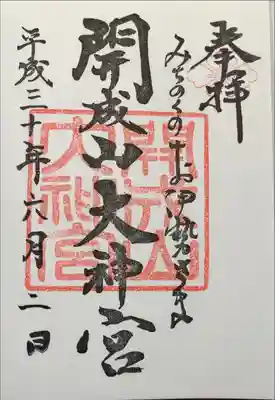 奉拝
みちのくのお伊勢さま
開成山大神宮
平成三十年六月二日
開成山
大神宮